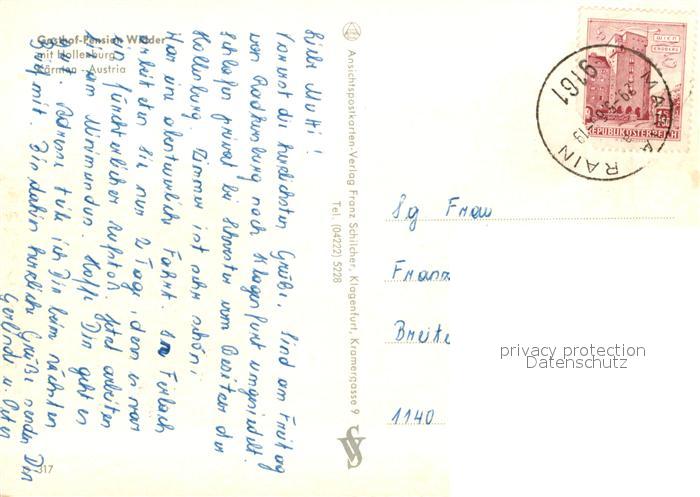 Gasthof-Pension Wilder
mit Hollenburg
Kärnten - Austria
Liebe Mutti!
Vorerst die herzlichsten Grüße. Sind am Freitag
von Radkersburg nach Klagenfurt umgesiedelt.
Schlafen privat bei Schwester vom Besitzer der
Hollenburg. Zimmer ist sehr schön.
War eine abenteuerliche Fahrt. In Ferlach
arbeiteten sie nur 2 Tage, denn es war
ein fürchterlicher Zustand. Jetzt arbeiten
sie am Minimundus. Hoffe Dir geht es
gut. Adresse teile ich Dir beim nächsten
Brief mit. Bis dahin herzliche Grüße senden Dir
Gerlinde u. Peter
317
Ansichtspostkarten-Verlag Franz Schilcher, Klagenfurt, Kramergasse 9
Tel. (04222) 5228
REPUBLIK ÖSTERREICH
MARIA RAIN
9161
Sg Frau
Franz
Breite
1140
privacy protection
Datenschutz